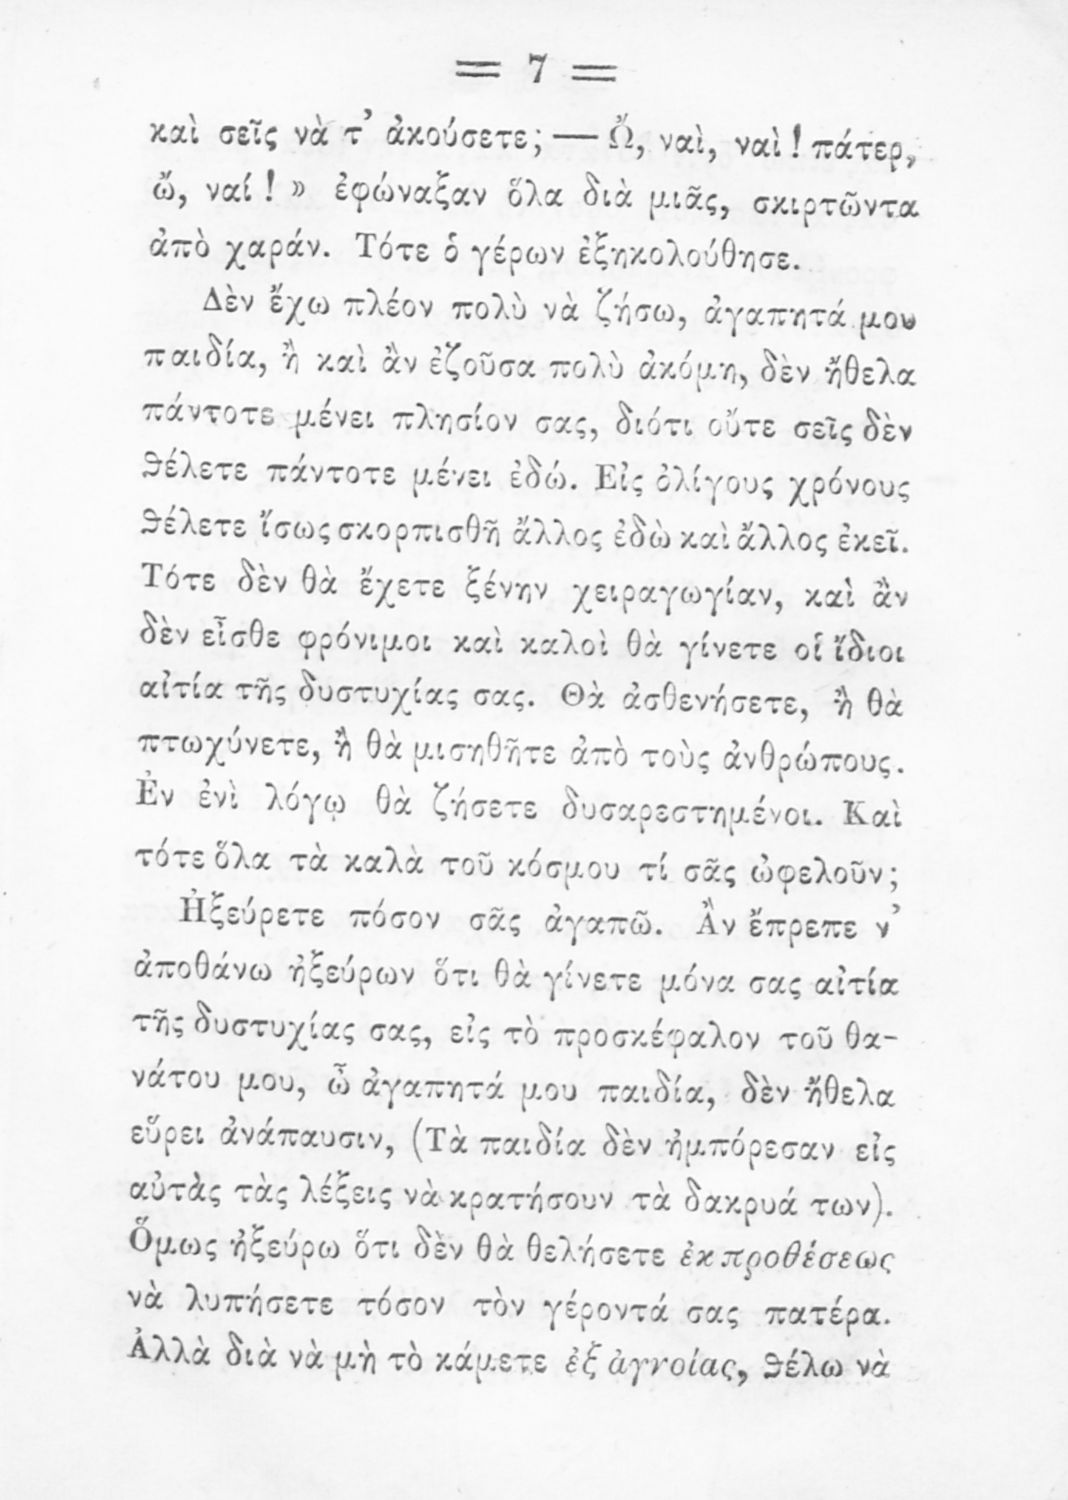 = 7 =
καὶ σεῖς νὰ τ’ ἀκούσετε; — Ὤ, ναὶ, ναὶ ! πάτερ,
ὤ, ναί ! » ἐφώναξαν ὅλα διὰ μιᾶς, σκιρτῶντα
ἀπὸ χαράν. Τότε ὁ γέρων ἐξηκολούθησε.
Δὲν ἔχω πλέον πολὺ νὰ ζήσω, ἀγαπητά μου
παιδία, ἢ καὶ ἂν ἐζοῦσα πολὺ ἀκόμη, δὲν ἤθελα
πάντοτε μένει πλησίον σας, διότι οὔτε σεῖς δὲν
ϑέλετε πάντοτε μένει ἐδώ. Εἰς ὀλίγους χρόνους
ϑέλετε ἴσως σκορπισθῆ ἄλλος ἐδὼ καὶ ἄλλος ἐκεῖ.
Τότε δὲν θὰ ἔχετε ξένην χειραγωγίαν, καὶ ἂν
δὲν εἶσθε φρόνιμοι καὶ καλοὶ θὰ γίνετε οἱ ἴδιοι
αἰτία τῆς δυστυχίας σας. Θὰ ἀσθενήσετε, ἢ θὰ
πτωχύνετε, ἢ θὰ μισηθῆτε ἀπὸ τοὺς ἀνθρώπους.
Ἐν ἑνὶ λόγῳ θὰ ζήσετε δυσαρεστημένοι. Καὶ
τότε ὅλα τὰ καλὰ τοῦ κόσμου τί σᾶς ὠφελοῦν;
Ἠξεύρετε πόσον σᾶς ἀγαπῶ. Ἂν ἔπρεπε ν’
ἀποθάνω ἠξεύρων ὅτι θὰ γίνετε μόνα σας αἰτία
τῆς δυστυχίας σας, εἰς τὸ προσκέφαλον τοῦ θα-
νάτου μου, ὦ ἀγαπητά μου παιδία, δὲν ἤθελα
εὕρει ἀνάπαυσιν, (Τὰ παιδία δὲν ἠμπόρεσαν εἰς
αὐτὰς τὰς λέξεις νὰ κρατήσουν τὰ δακρυά των).
Ὅμως ἠξεύρω ὅτι δὲν θὰ θελήσετε ἐκ προθέσεως
νὰ λυπήσετε τόσον τὸν γέροντά σας πατέρα.
Ἀλλὰ διὰ νὰ μὴ τὸ κάμετε ἐξ ἀγνοίας, ϑέλω νὰ